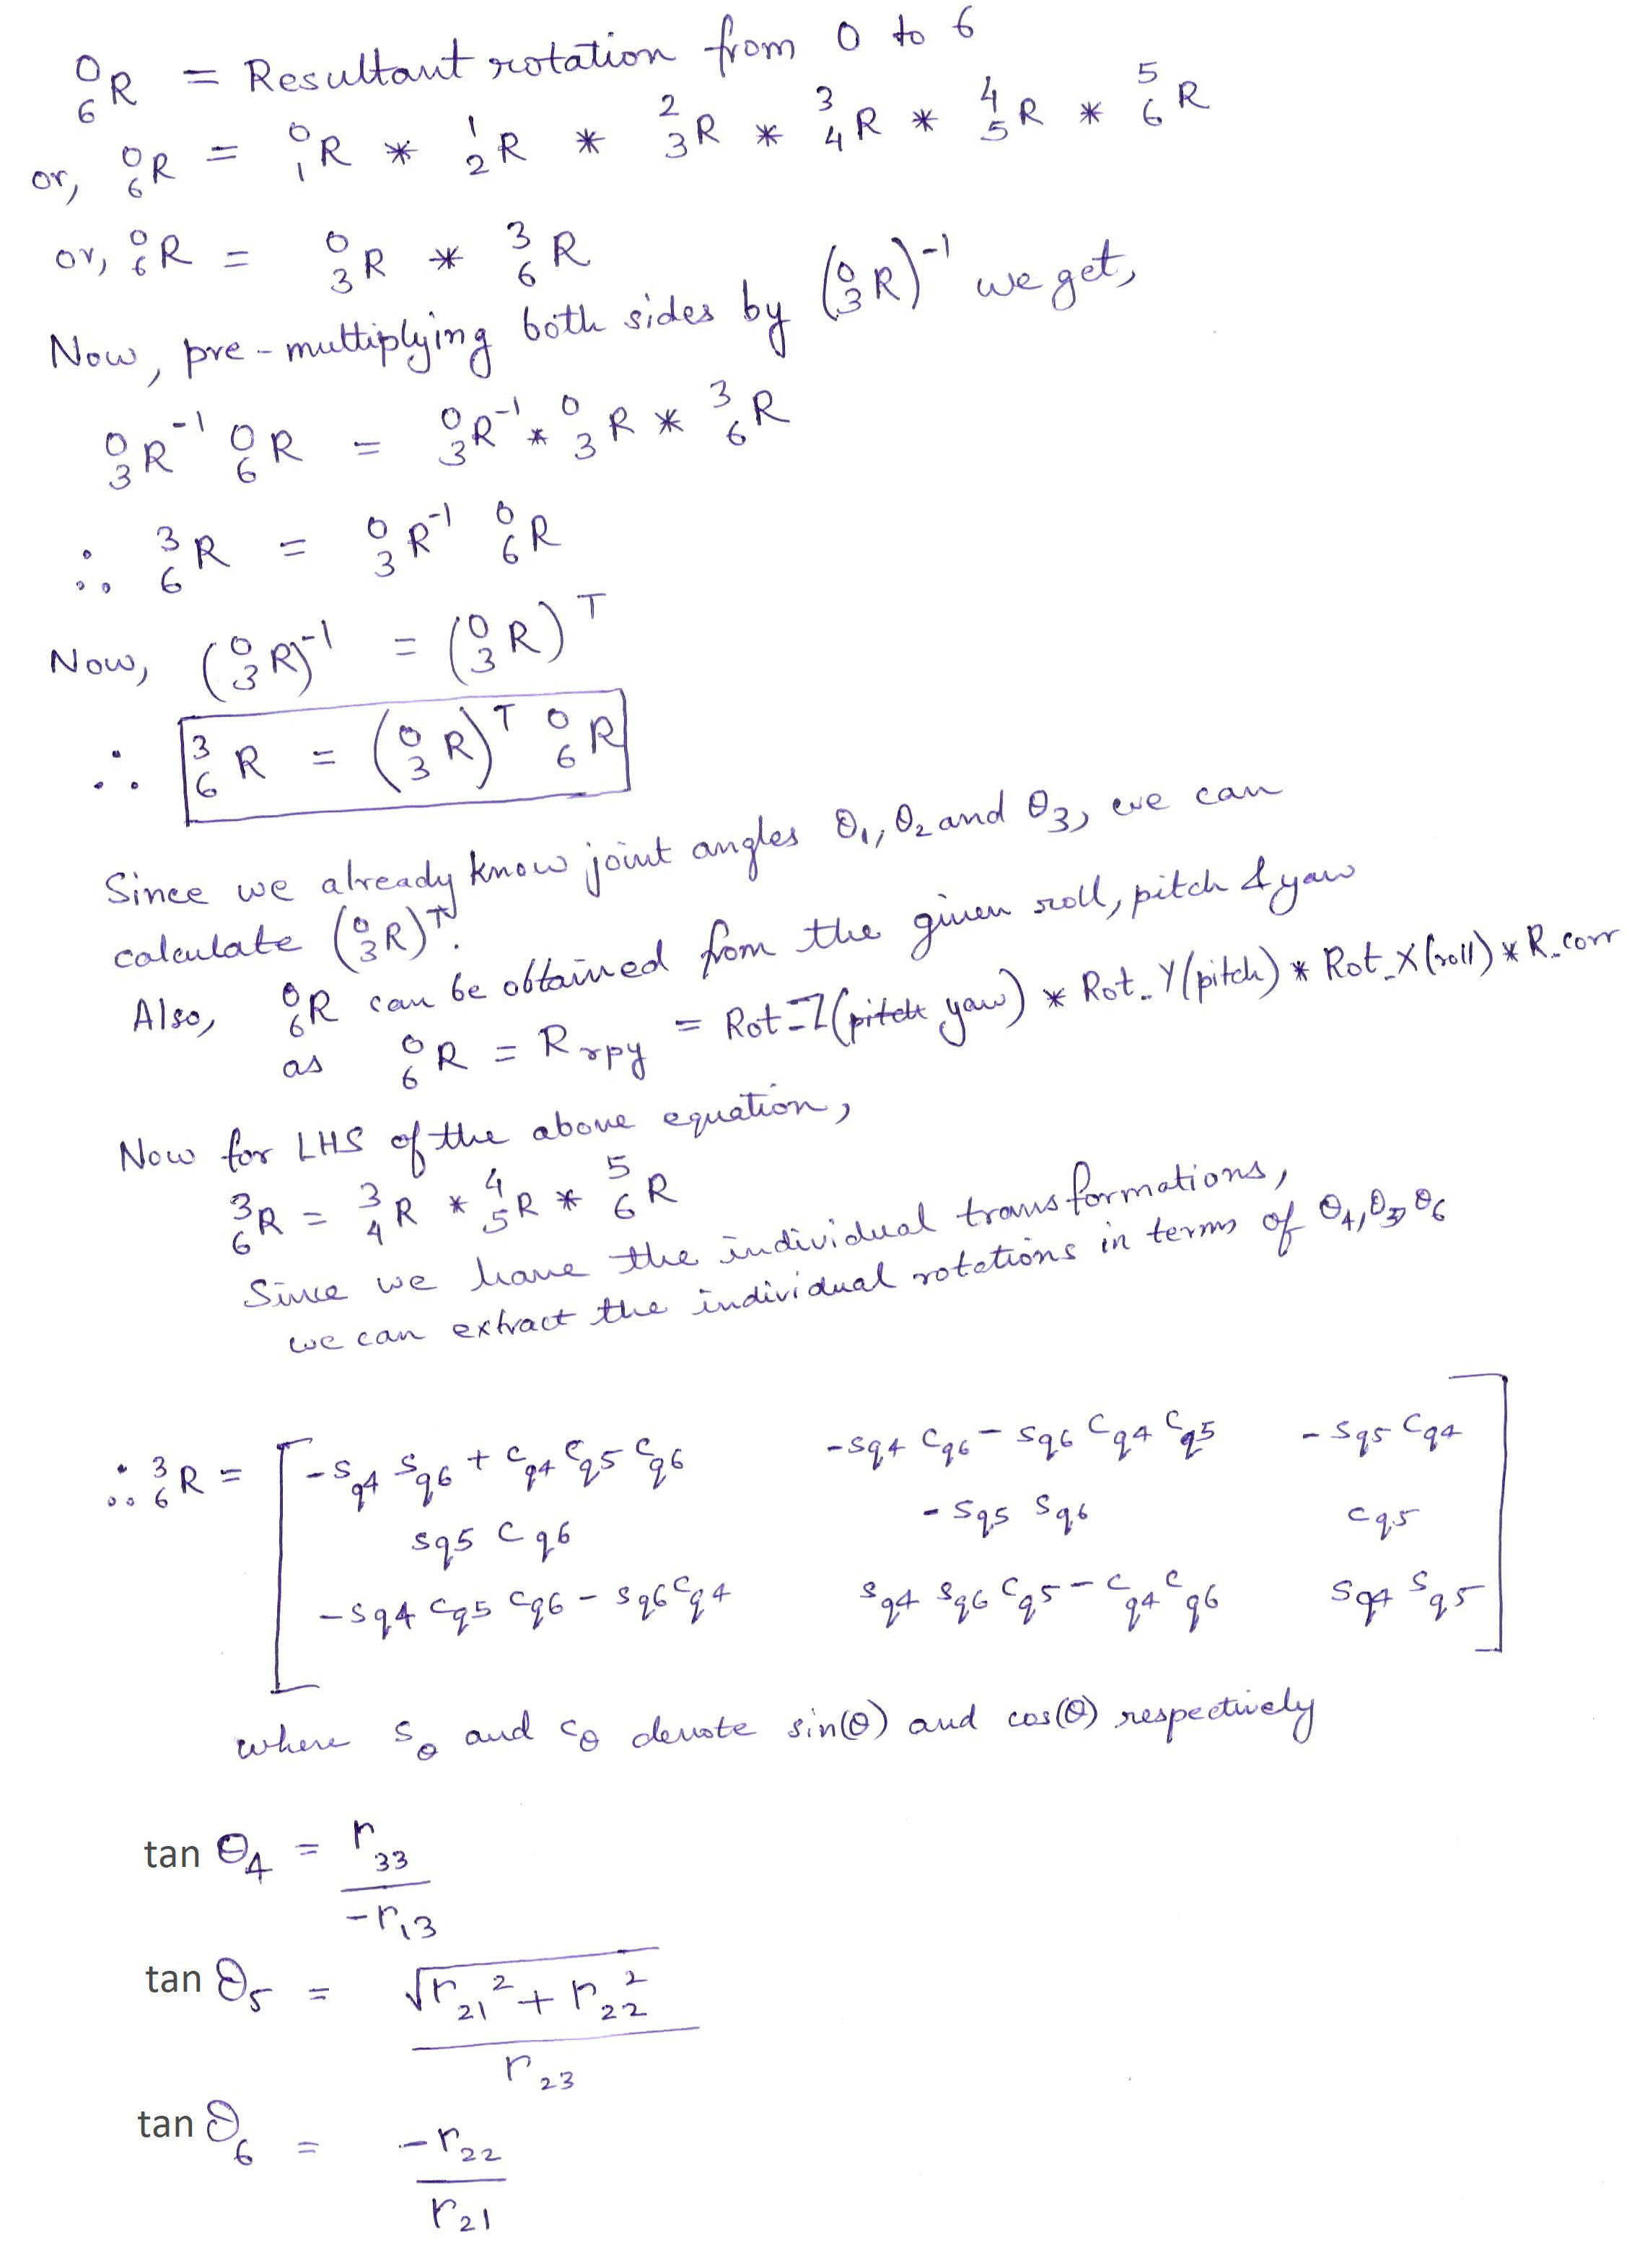 ⁰₆R = Resultant rotation from 0 to 6
or, ⁰₆R = ⁰₁R * ¹₂R * ²₃R * ³₄R * ⁴₅R * ⁵₆R
or, ⁰₆R = ⁰₃R * ³₆R
Now, pre-multiplying both sides by (⁰₃R)⁻¹ we get,
⁰₃R⁻¹ ⁰₆R = ⁰₃R⁻¹ * ⁰₃R * ³₆R
∴ ³₆R = ⁰₃R⁻¹ ⁰₆R
Now, (⁰₃R)⁻¹ = (⁰₃R)ᵀ
∴ ³₆R = (⁰₃R)ᵀ ⁰₆R
Since we already know joint angles θ₁, θ₂ and θ₃, we can
calculate (⁰₃R)ᵀ.
Also, ⁰₆R can be obtained from the given roll, pitch & yaw
as ⁰₆R = Rrpy = Rot_Z(pitch yaw) * Rot_Y(pitch) * Rot_X(roll) * R_corr
Now for LHS of the above equation,
³₆R = ³₄R * ⁴₅R * ⁵₆R
Since we have the individual transformations,
we can extract the individual rotations in terms of θ₄, θ₅, θ₆
∴ ³₆R = [ -sq4 sq6 + cq4 cq5 cq6   -sq4 cq6 - sq6 cq4 cq5   -sq5 cq4
sq5 cq6   -sq5 sq6   cq5
-sq4 cq5 cq6 - sq6 cq4   sq4 sq6 cq5 - cq4 cq6   sq4 sq5 ]
where sθ and cθ denote sin(θ) and cos(θ) respectively
tan θ₄ = r₃₃
-r₁₃
tan θ₅ = √r₂₁² + r₂₂²
r₂₃
tan θ₆ = -r₂₂
r₂₁